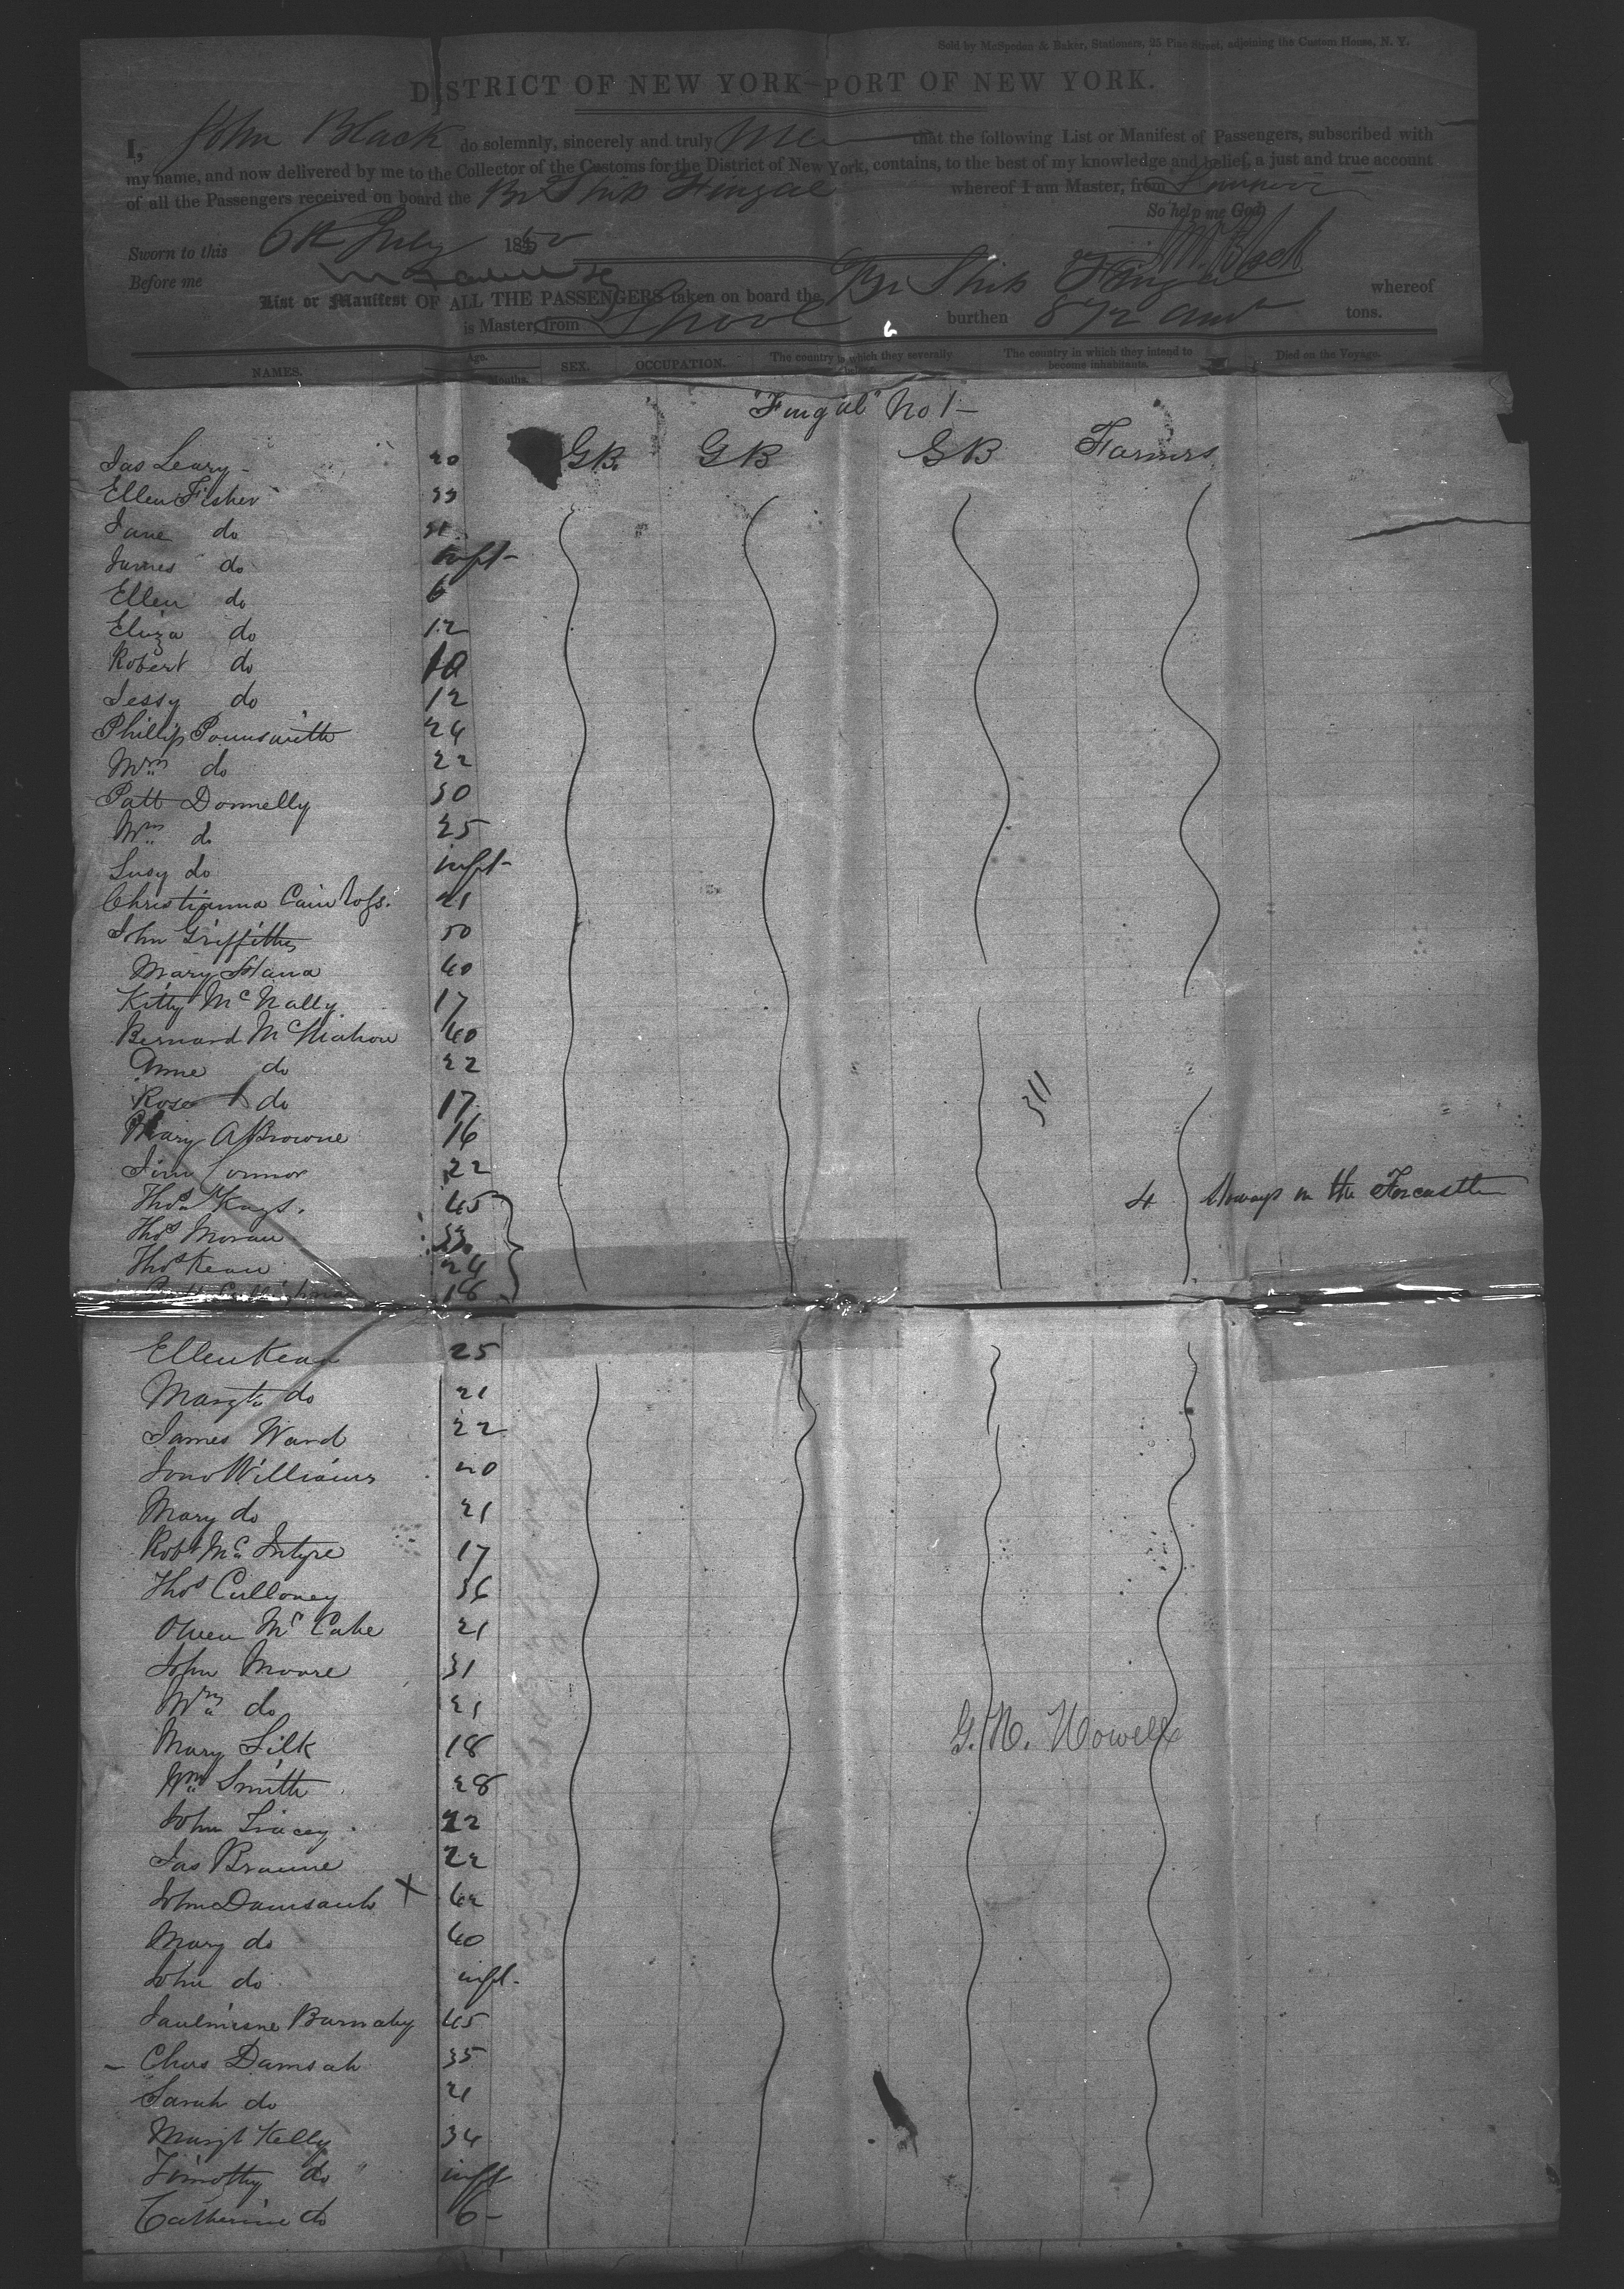 Sold by McSpedon & Baker, Stationers, 25 Pine Street, adjoining the Custom House, N. Y.
DISTRICT OF NEW YORK—PORT OF NEW YORK.
I, John Black do solemnly, sincerely and truly that the following List or Manifest of Passengers, subscribed with
my name, and now delivered by me to the Collector of the Customs for the District of New York, contains, to the best of my knowledge and belief, a just and true account
of all the Passengers received on board the Br Ship Fingal whereof I am Master, from
So help me God
Sworn to this 6th July 185
Jn. Black
Before me
List or Manifest OF ALL THE PASSENGERS taken on board the Br Ship Fingal whereof
is Master, from Lpool burthen 872 tons.
NAMES. Age. Months. SEX. OCCUPATION. The country in which they severally belong. The country in which they intend to become inhabitants. Died on the Voyage.
"Fingal" No 1 —
Jas Leary - 20 GB. GB GB Farmers
Ellen Fisher 33
Jane do
James do inft-
Ellen do 6
Eliza do 12
Robert do 10
Jessy do 12
Phillip 24
Mrs do 22
Patt Donnelly 30
Mrs do 25
Susy do inft-
Christianna 21
John Griffiths 50
Mary 40
Kitty McNally 17
Bernard McMahon 40
Anne do 22
Rose do 17
Mary A Browne 16
Connor 22
Thos Kays. 45 4 Always in the Forcastle
Thos Moran
Thos Kean 24
18
Ellen Kean 25
Margt do 21
James Ward 22
Jno Williams 20
Mary do 21
Robt McIntyre 17
Thos Culloney 36
Owen McCabe 21
John Moore 31
Mrs do 21
Mary Silk 18 G. N. Nowell
Wm Smith 28
John Tracey 22
Jas Browne 22
John X 42
Mary do 40
John do inft-
Barnaby 45
- Chas Damsah 35
Sarah do 21
Margt Kelly 34
Timothy do inft
Catherine do 6-